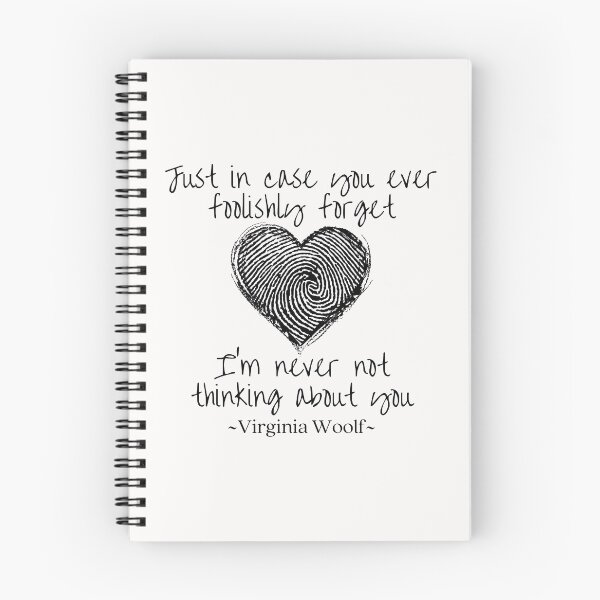 Just in case you ever
foolishly forget
I'm never not
thinking about you
~Virginia Woolf~